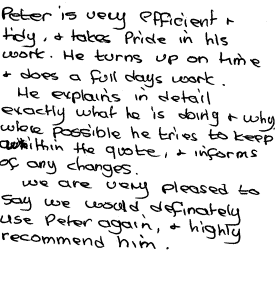 Peter is very efficient +
tidy, + takes Pride in his
work. He turns up on time
+ does a full days work.
He explains in detail
exactly what he is doing + why
where possible he tries to keep
within the quote, + informs
of any changes.
we are very pleased to
say we would definately
use Peter again, + highly
recommend him.